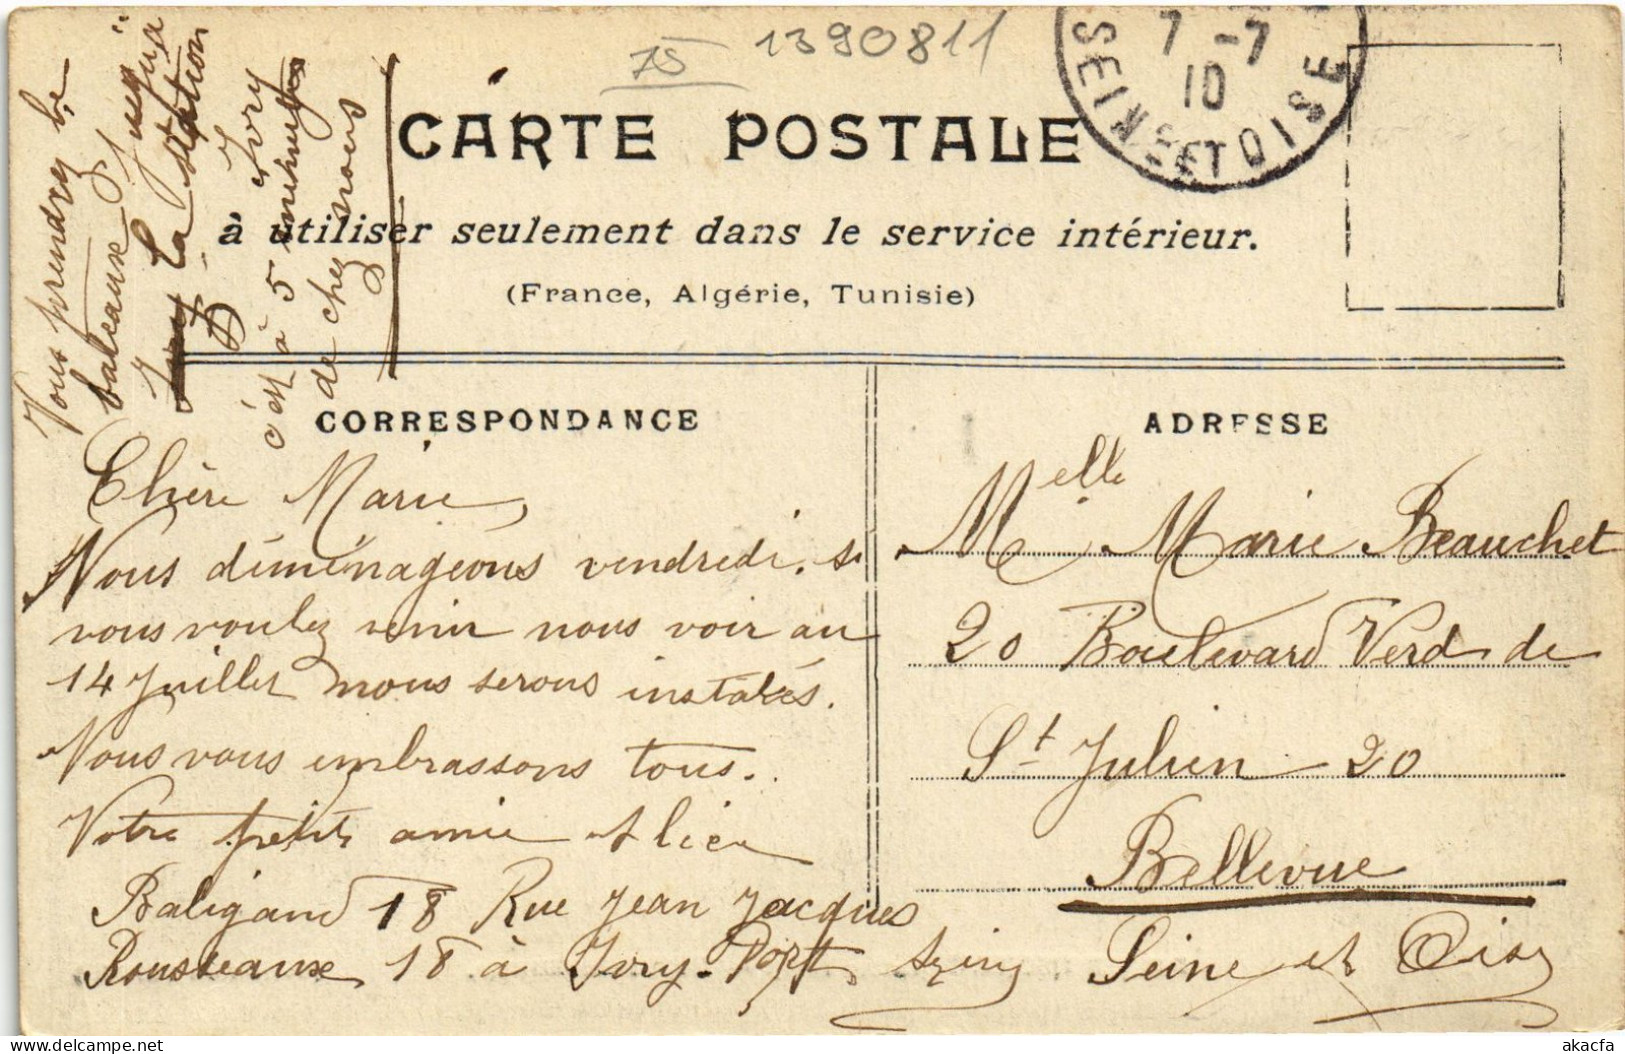 75 1390811
7 -7
10
SEINE ET OISE
CARTE POSTALE
à utiliser seulement dans le service intérieur.
(France, Algérie, Tunisie)
Vous prendrez le
bateaux jusqua
Ivry
La station
D Ivry
c'ést à 5 minutes
de chez nous
CORRESPONDANCE
Chère Marie,
Nous déménageons vendredi. si
vous voulez venir nous voir au
14 Juillet nous serons instalés.
Nous vous embrassons tous.
Votre petite amie Alice
Baligand 18 Rue Jean Jacques
Rousseaux 18 à Ivry-Port Seine
ADRESSE
Melle Marie Beauchet
20 Boulevard Verd de
St Julien 20
Bellevue
Seine et Oise
akacfa